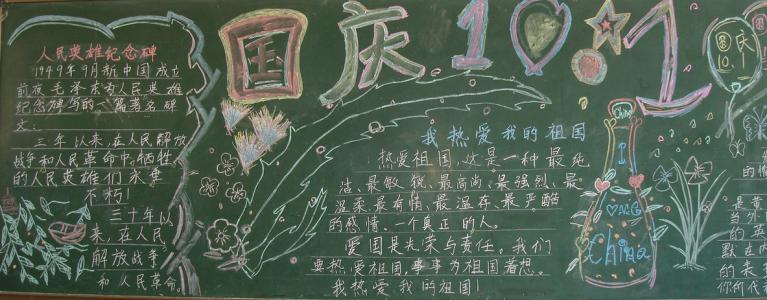 人民英雄纪念碑
1949年9月新中国成立
前夜毛泽东为人民英雄
纪念碑写的一篇著名碑
文:
三年以来,在人民解放
战争和人民革命中牺牲
的人民英雄们永垂
不朽!
三十年以
来,在人民
解放战争
和人民革命
国庆10·1
我热爱我的祖国
热爱祖国,这是一种最纯
洁、最敏锐、最高尚、最强烈、最
温柔、最有情、最温存、最严酷
的感情。一个真正的人。
爱国是光荣与责任。我们
要热爱祖国,事事为祖国着想。
我热爱我的祖国!
China
I
♡MG
China
国庆
10.1
的情
是黄
当外
的英
默在内
的表
你何代